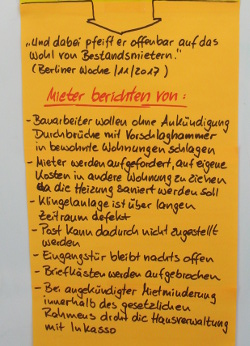 „Und dabei pfeift er offenbar auf das
Wohl von Bestandsmietern."
(Berliner Woche /11/2017)
Mieter berichten von:
- Bauarbeiter wollen ohne Ankündigung
Durchbrüche mit Vorschlaghammer
in bewohnte Wohnungen schlagen
- Mieter werden aufgefordert, auf eigene
Kosten in andere Wohnung zu ziehen
da die Heizung saniert werden soll
- Klingelanlage ist über langen
Zeitraum defekt
- Post kann dadurch nicht zugestellt
werden
- Eingangstür bleibt nachts offen
- Briefkästen werden aufgebrochen
- Bei angekündigter Mietminderung
innerhalb des gesetzlichen
Rahmens droht die Hausverwaltung
mit Inkasso